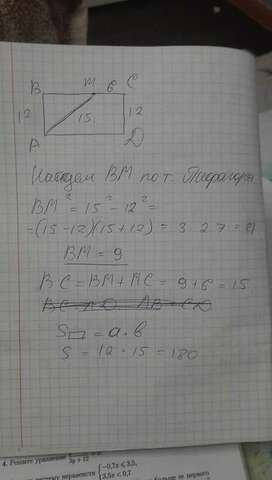 B M 6 C
12 15 12
A D
Найдем BM по т. Пифагора
BM² = 15² - 12² =
=(15-12)(15+12) = 3·27 = 81
BM = 9
BC = BM + MC = 9+6 = 15
BC = AD AB = CD
S▭ = a·b
S = 12·15 = 180
4. Решите уравнение
3y + 12
неравенств { -0,7x ≤ 3,5,
3,5x ≤ 0,7.